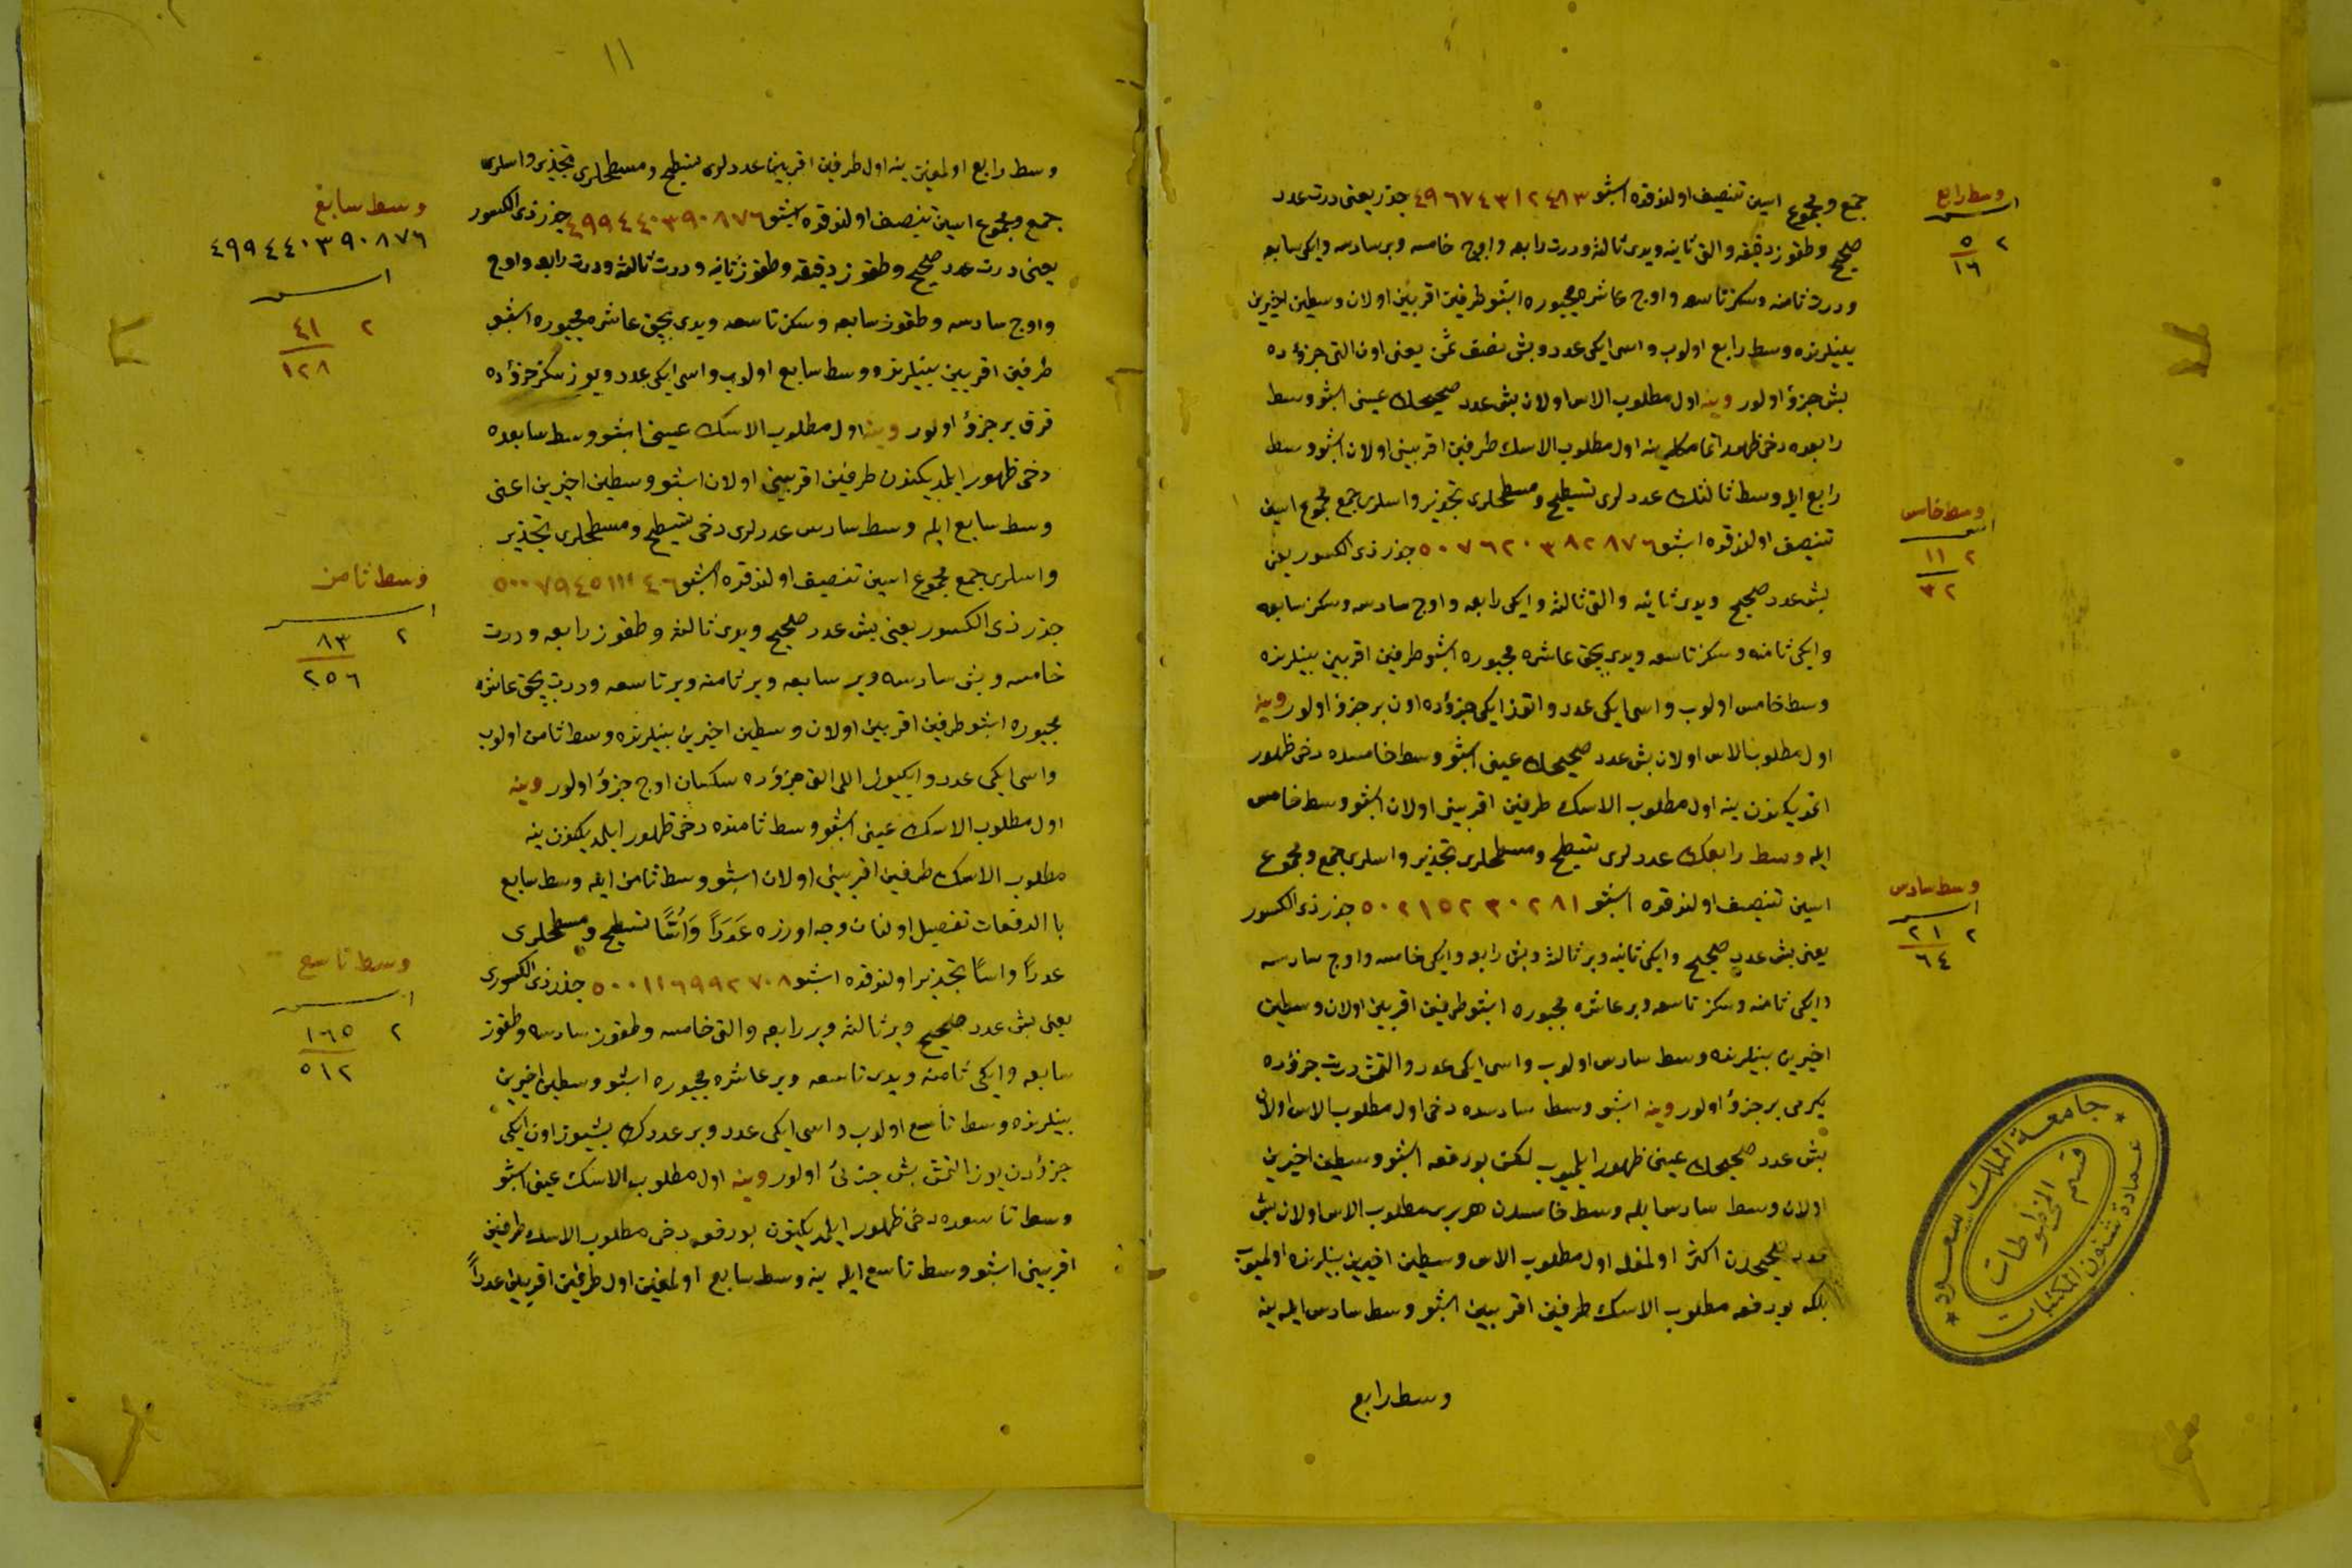 جمع و مجموع اسین تنصیف اولندقده اشبو ٤٩٦٧٤٣١٢٤١٣ جذر یعنی درت عدد
صحیح و طقوز دقیقه و التی ثانیه و یدی ثالثه و درت رابعه و اوج خامسه و بر سادسه و ایکی سابعه
و درت ثامنه و سکز تاسعه و اوج عاشره مجبوره اشبو طرفین اقربین اولان وسطین اخیرین
بینلرنده وسط رابع اولوب و اسی ایکی عدد و بش نصف ثمن یعنی اون التی جزؤده
بش جزؤ اولور وینه اول مطلوب الاس اولان بش عدد صحیحك عینی اشبو وسط
رابعده دخی ظهور ینه اول مطلوب الاسك طرفین اقربینی اولان اشبو وسط
رابع ایله وسط ثالثك عددلری تسطیح و مسطحلری تجذیر و اسلری جمع مجموع اسین
تنصیف اولندقده اشبو ٥٠٧٦٢٠٣٨٢٨٧٦ جذر ذی الکسور یعنی
بش عدد صحیح و یدی ثانیه و التی ثالثه و ایکی رابعه و اوج سادسه و سکز سابعه
و ایکی ثامنه و سکز تاسعه و یدی بچق عاشره مجبوره اشبو طرفین اقربین بینلرنده
وسط خامس اولوب و اسی ایکی عدد و اتوز ایکی جزؤده اون بر جزؤ اولور وینه
اول مطلوب الاس اولان بش عدد صحیحك عینی اشبو وسط خامسده دخی ظهور
اتمدیکندن ینه اول مطلوب الاسك طرفین اقربینی اولان اشبو وسط خامس
ایله وسط رابعك عددلری تسطیح و مسطحلری تجذیر و اسلری جمع و مجموع
اسین تنصیف اولندقده اشبو ٥٠٢١٥٢٣٠٢٨١ جذر ذی الکسور
یعنی بش عدد صحیح و ایکی ثانیه و بر ثالثه و بش رابعه و ایکی خامسه و اوج سادسه
و ایکی ثامنه و سکز تاسعه و بر عاشره مجبوره اشبو طرفین اقربین اولان وسطین
اخیرین بینلرنده وسط سادس اولوب و اسی ایکی عدد و التمش درت جزؤده
یکرمی بر جزؤ اولور وینه اشبو وسط سادسده دخی اول مطلوب الاس اولان
بش عدد صحیحك عینی ظهور ایلمیوب لکن بو دفعه اشبو وسطین اخیرین
اولان وسط سادس ایله وسط خامسدن هر بری مطلوب الاس اولان بش
عدد صحیحدن اکثر اولمغله اول مطلوب الاس وسطین اخیرین بینلرنده اولمیوب
بلکه بو دفعه مطلوب الاسك طرفین اقربین اشبو وسط سادس ایله ینه
وسط رابع
وسط رابع
اسـ
٢ ٥
١٦
وسط خامس
اس
٢ ١١
٣٢
وسط سادس
اسـ
٢ ٢١
٦٤
جامعة الملك سعود
قسم المخطوطات
عمادة شئون المكتبات
١١
وسط رابع اولمغین ینه اول طرفین اقربینك عددلری تسطیح و مسطحلری تجذیر و اسلری
جمع و مجموع اسین تنصیف اولندقده اشبو ٤٩٩٤٤٠٣٩٠٨٧٦ جذر ذی الکسور
یعنی درت عدد صحیح و طقوز دقیقه و طقوز ثانیه و درت ثالثه و درت رابعه و اوج
و اوج سادسه و طقوز سابعه و سکز تاسعه و یدی بچق عاشره مجبوره اشبو
طرفین اقربین بینلرنده وسط سابع اولوب و اسی ایکی عدد و یوز سکز جزؤده
قرق بر جزؤ اولور وینه اول مطلوب الاسك عینی اشبو وسط سابعده
دخی ظهور ایلمدیکندن طرفین اقربینی اولان اشبو وسطین اخیرین اعنی
وسط سابع ایله وسط سادس عددلری دخی تسطیح و مسطحلری تجذیر
و اسلری جمع مجموع اسین تنصیف اولندقده اشبو ٥٠٠٧٩٤٥١١١٤٠٦
جذر ذی الکسور یعنی بش عدد صحیح و یدی ثالثه و طقوز رابعه و درت
خامسه و بش سادسه و بر سابعه و بر ثامنه و بر تاسعه و درت بچق عاشره
مجبوره اشبو طرفین اقربین اولان وسطین اخیرین بینلرنده وسط ثامن اولوب
و اسی ایکی عدد و ایکیوز اللی التی جزؤده سکسان اوج جزؤ اولور وینه
اول مطلوب الاسك عینی اشبو وسط ثامنده دخی ظهور ایلمدیکندن ینه
مطلوب الاسك طرفین اقربینی اولان اشبو وسط ثامن ایله وسط سابع
با الدفعات تفصیل اولنان وجه اوزره عَدَدًا وَاُسًّا تسطیح و مسطحلری
عدداً و اساً تجذیر اولندقده اشبو ٥٠٠٠١١٦٩٩٢٧٠٨ جذر ذی الکسوری
یعنی بش عدد صحیح و بر ثالثه و بر رابعه و التی خامسه و طقوز سادسه و طقوز
سابعه و ایکی ثامنه و یدی تاسعه و بر عاشره مجبوره اشبو وسطین اخیرین
بینلرنده وسط تاسع اولوب و اسی ایکی عدد و بر عددك بشیوز اون ایکی
جزؤدن یوز التمش بش جزئ اولور وینه اول مطلوب الاسك عینی اشبو
وسط تاسعده دخی ظهور ایلمدیکندن بو دفعه دخی مطلوب الاسك طرفین
اقربینی اشبو وسط تاسع ایله ینه وسط سابع اولمغین اول طرفین اقربین عدداً
وسط سابع
٤٩٩٤٤٠٣٩٠٨٧٦
اسـ
٢ ٤١
١٢٨
وسط ثامن
اسـ
٢ ٨٣
٢٥٦
وسط تاسع
اسـ
٢ ١٦٥
٥١٢